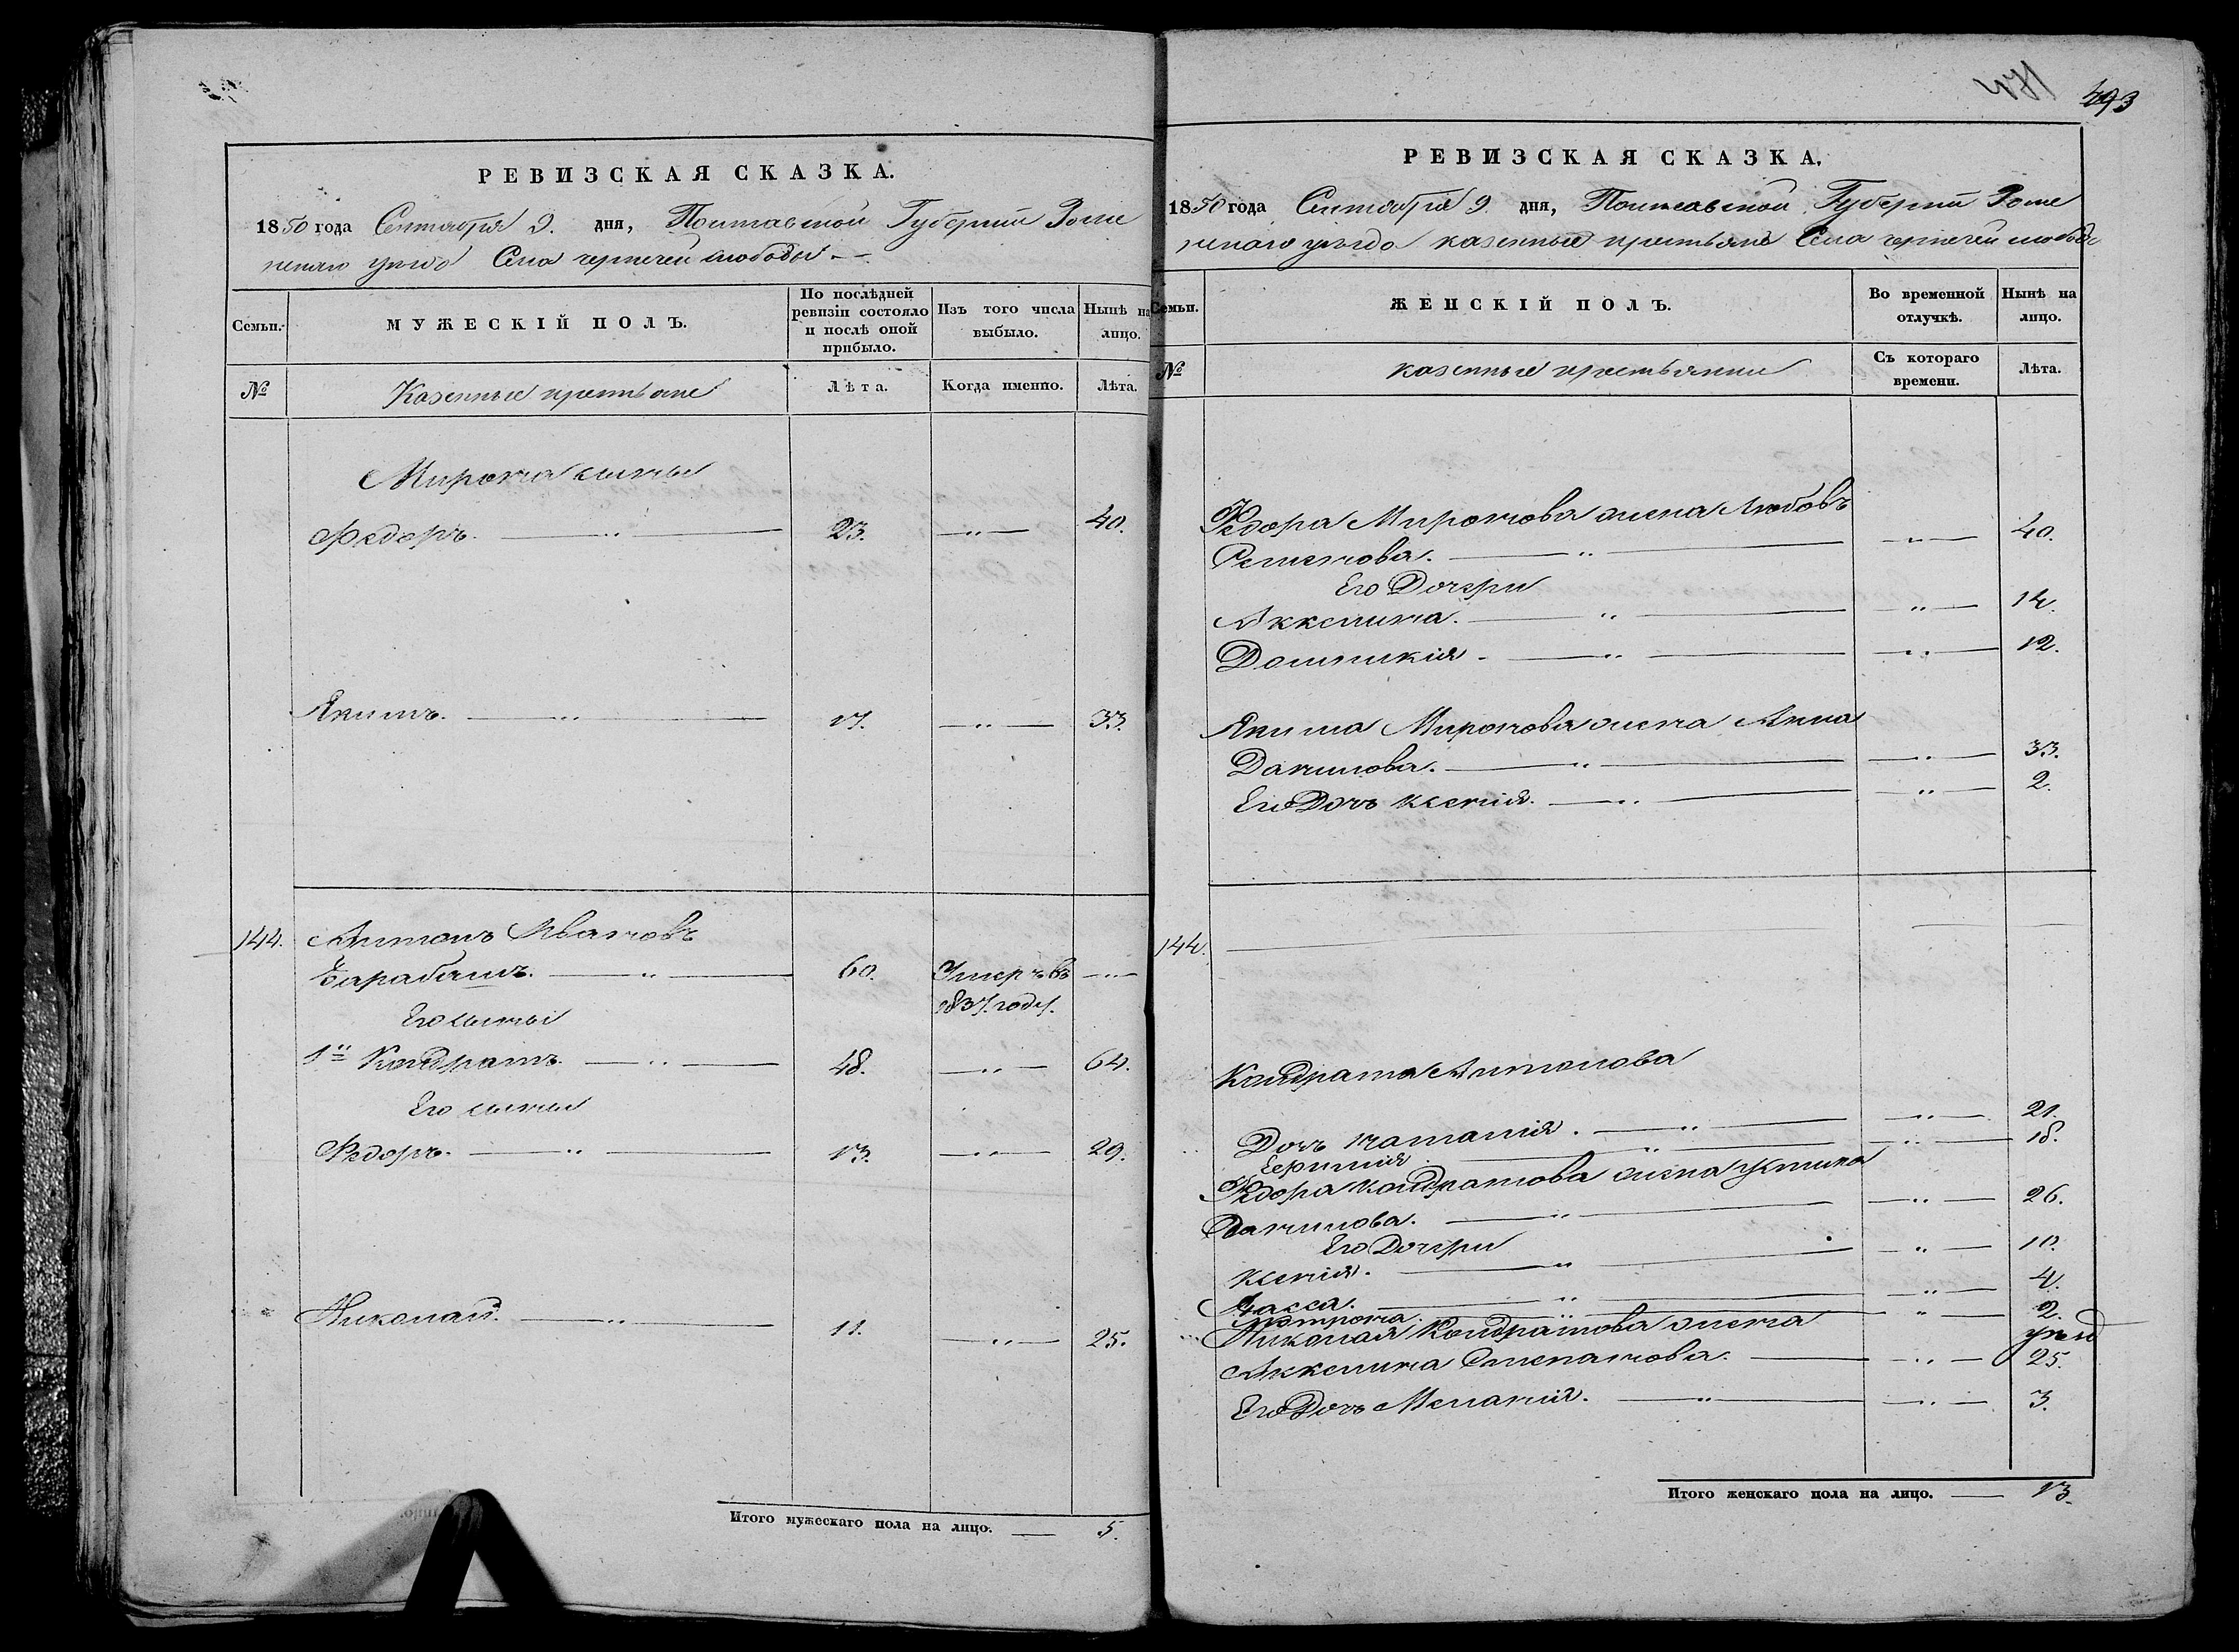 РЕВИЗСКАЯ СКАЗКА.
1850 года Сентября 9. дня, Полтавской Губернiи Роме
нскаго уѣзда Села черпечей слободы
Семьи.
МУЖЕСКIЙ ПОЛЪ.
По послѣдней ревизiи состояло и послѣ оной прибыло.
Изъ того числа выбыло.
Нынѣ на лицо.
№
Казенные крестьяне
Лѣта.
Когда именно.
Лѣта.
Мирона сыны
Федоръ. 23. 40.
Якимъ. 17. 33.
144. Антонъ Ивановъ
Барабашъ. 60. Умеръ въ
1837. году.
Его сыны
1й Кондратъ. 48. 64.
Его сыны
Федоръ. 13. 29.
Николай. 11. 25.
Итого мужескаго пола на лицо. 5.
493
РЕВИЗСКАЯ СКАЗКА.
1850 года Сентября 9. дня, Полтавской Губернiи Роме
нскаго уѣзда казенные крестьяне Села черпечей слободы
Семьи.
ЖЕНСКIЙ ПОЛЪ.
Во временной отлучкѣ.
Нынѣ на лицо.
№
казенные крестьянки
Съ котораго времени.
Лѣта.
Федора Миронова жена Любовъ
Семенова. 40.
Его Дочери
Аккелина. 14.
Домникiя. 12.
Якима Миронова жена Анна
Данилова. 33.
Его Дочь Ксенiя. 2.
144.
Кондрата Антонова
Дочь Наталiя. 21.
Ефимiя 18.
Федора Кондратова жена Устина
Данилова. 26.
Его Дочери
Ксенiя. 10.
Васса. 4.
Мотрона. 2.
Николая Кондратова жена
Аккелина Степанова. 25.
Его Дочь Меланiя. 3.
Итого женскаго пола на лицо. 13.